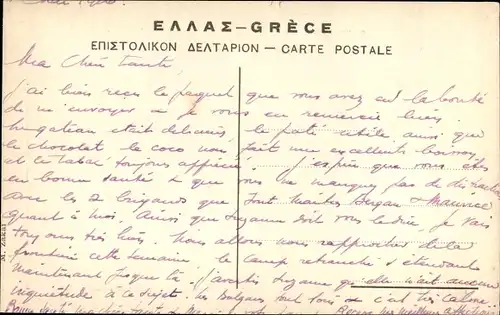 ΕΛΛΑΣ–GRÈCE
ΕΠΙΣΤΟΛΙΚΟΝ ΔΕΛΤΑΡΙΟΝ — CARTE POSTALE
Ma Chère tante,
j'ai bien reçu le paquet que vous avez eu la bonté
de m'envoyer & je vous en remercie bien.
était délicieux, le pâté utile ainsi que
le chocolat. le coco nous fait une excellente boisson
et le tabac toujours apprécié. J'espère que vous êtes
en bonne santé & que vous ne manquez pas de distraction
avec les 2 brigands que sont maîtres & Maurice
Quant à moi. Ainsi que Suzanne doit vous le dire, je vais
toujours très bien. Nous allons nous rapprocher de la
frontière cette semaine. le camp retranché s'étendant
maintenant jusque là. J'avertis Suzanne qu'elle n'ait aucune
inquiétude à ce sujet. les Bulgares sont loin & c'est très calme.
Bonne santé ma chère tante Recevez les meilleures